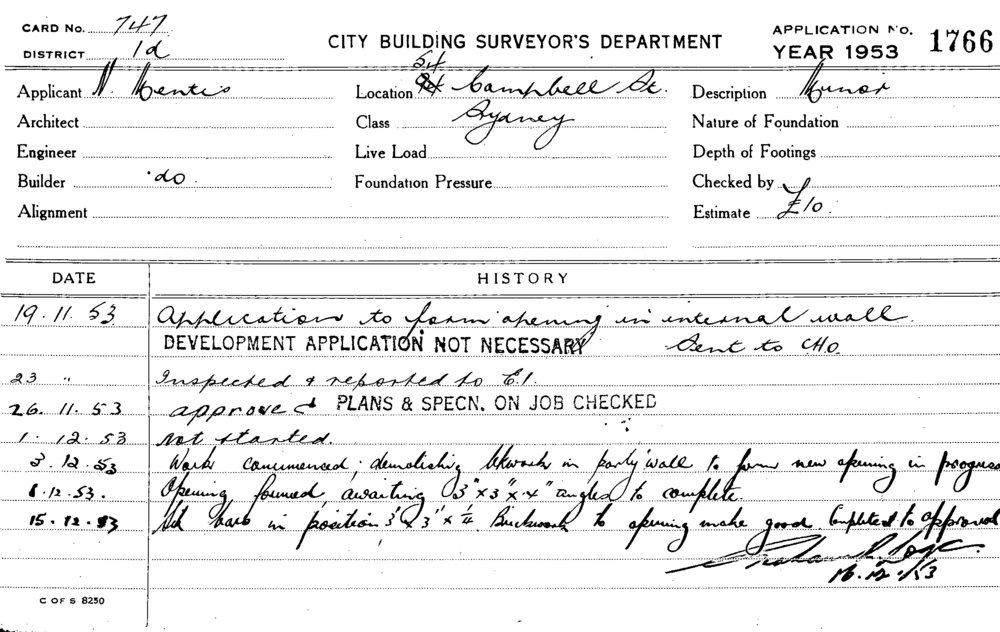 CARD No. 747
DISTRICT 1d
CITY BUILDING SURVEYOR'S DEPARTMENT
APPLICATION No. 1766
YEAR 1953
Applicant N. Mentis
Location 54 Campbell St.
Description Minor
Architect
Class Sydney
Nature of Foundation
Engineer
Live Load
Depth of Footings
Builder do
Foundation Pressure
Checked by
Alignment
Estimate £10
DATE HISTORY
19.11.53 Application to form opening in internal wall.
DEVELOPMENT APPLICATION NOT NECESSARY Sent to CHO.
23 " Inspected & reported to E.I.
26.11.53 approved PLANS & SPECN. ON JOB CHECKED
1.12.53 Not started.
3.12.53 Work commenced; demolishing bkwork in party wall to form new opening in progress
8.12.53. Opening formed, awaiting 3" x 3" x angles to complete.
15.12.53 bars in position 3" x 3" x ¼ Brickwork to opening make good. Completed to approval
16.12.53
C OF S 8250